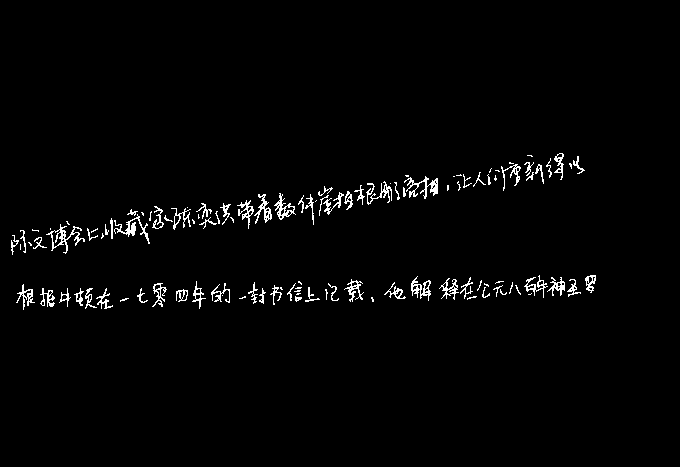 际文博会上,收藏家陈奕洪带着数件崖柏根雕亮相,让人们重新得以
根据牛顿在一七零四年的一封书信上记载,他解释在公元八百年神圣罗